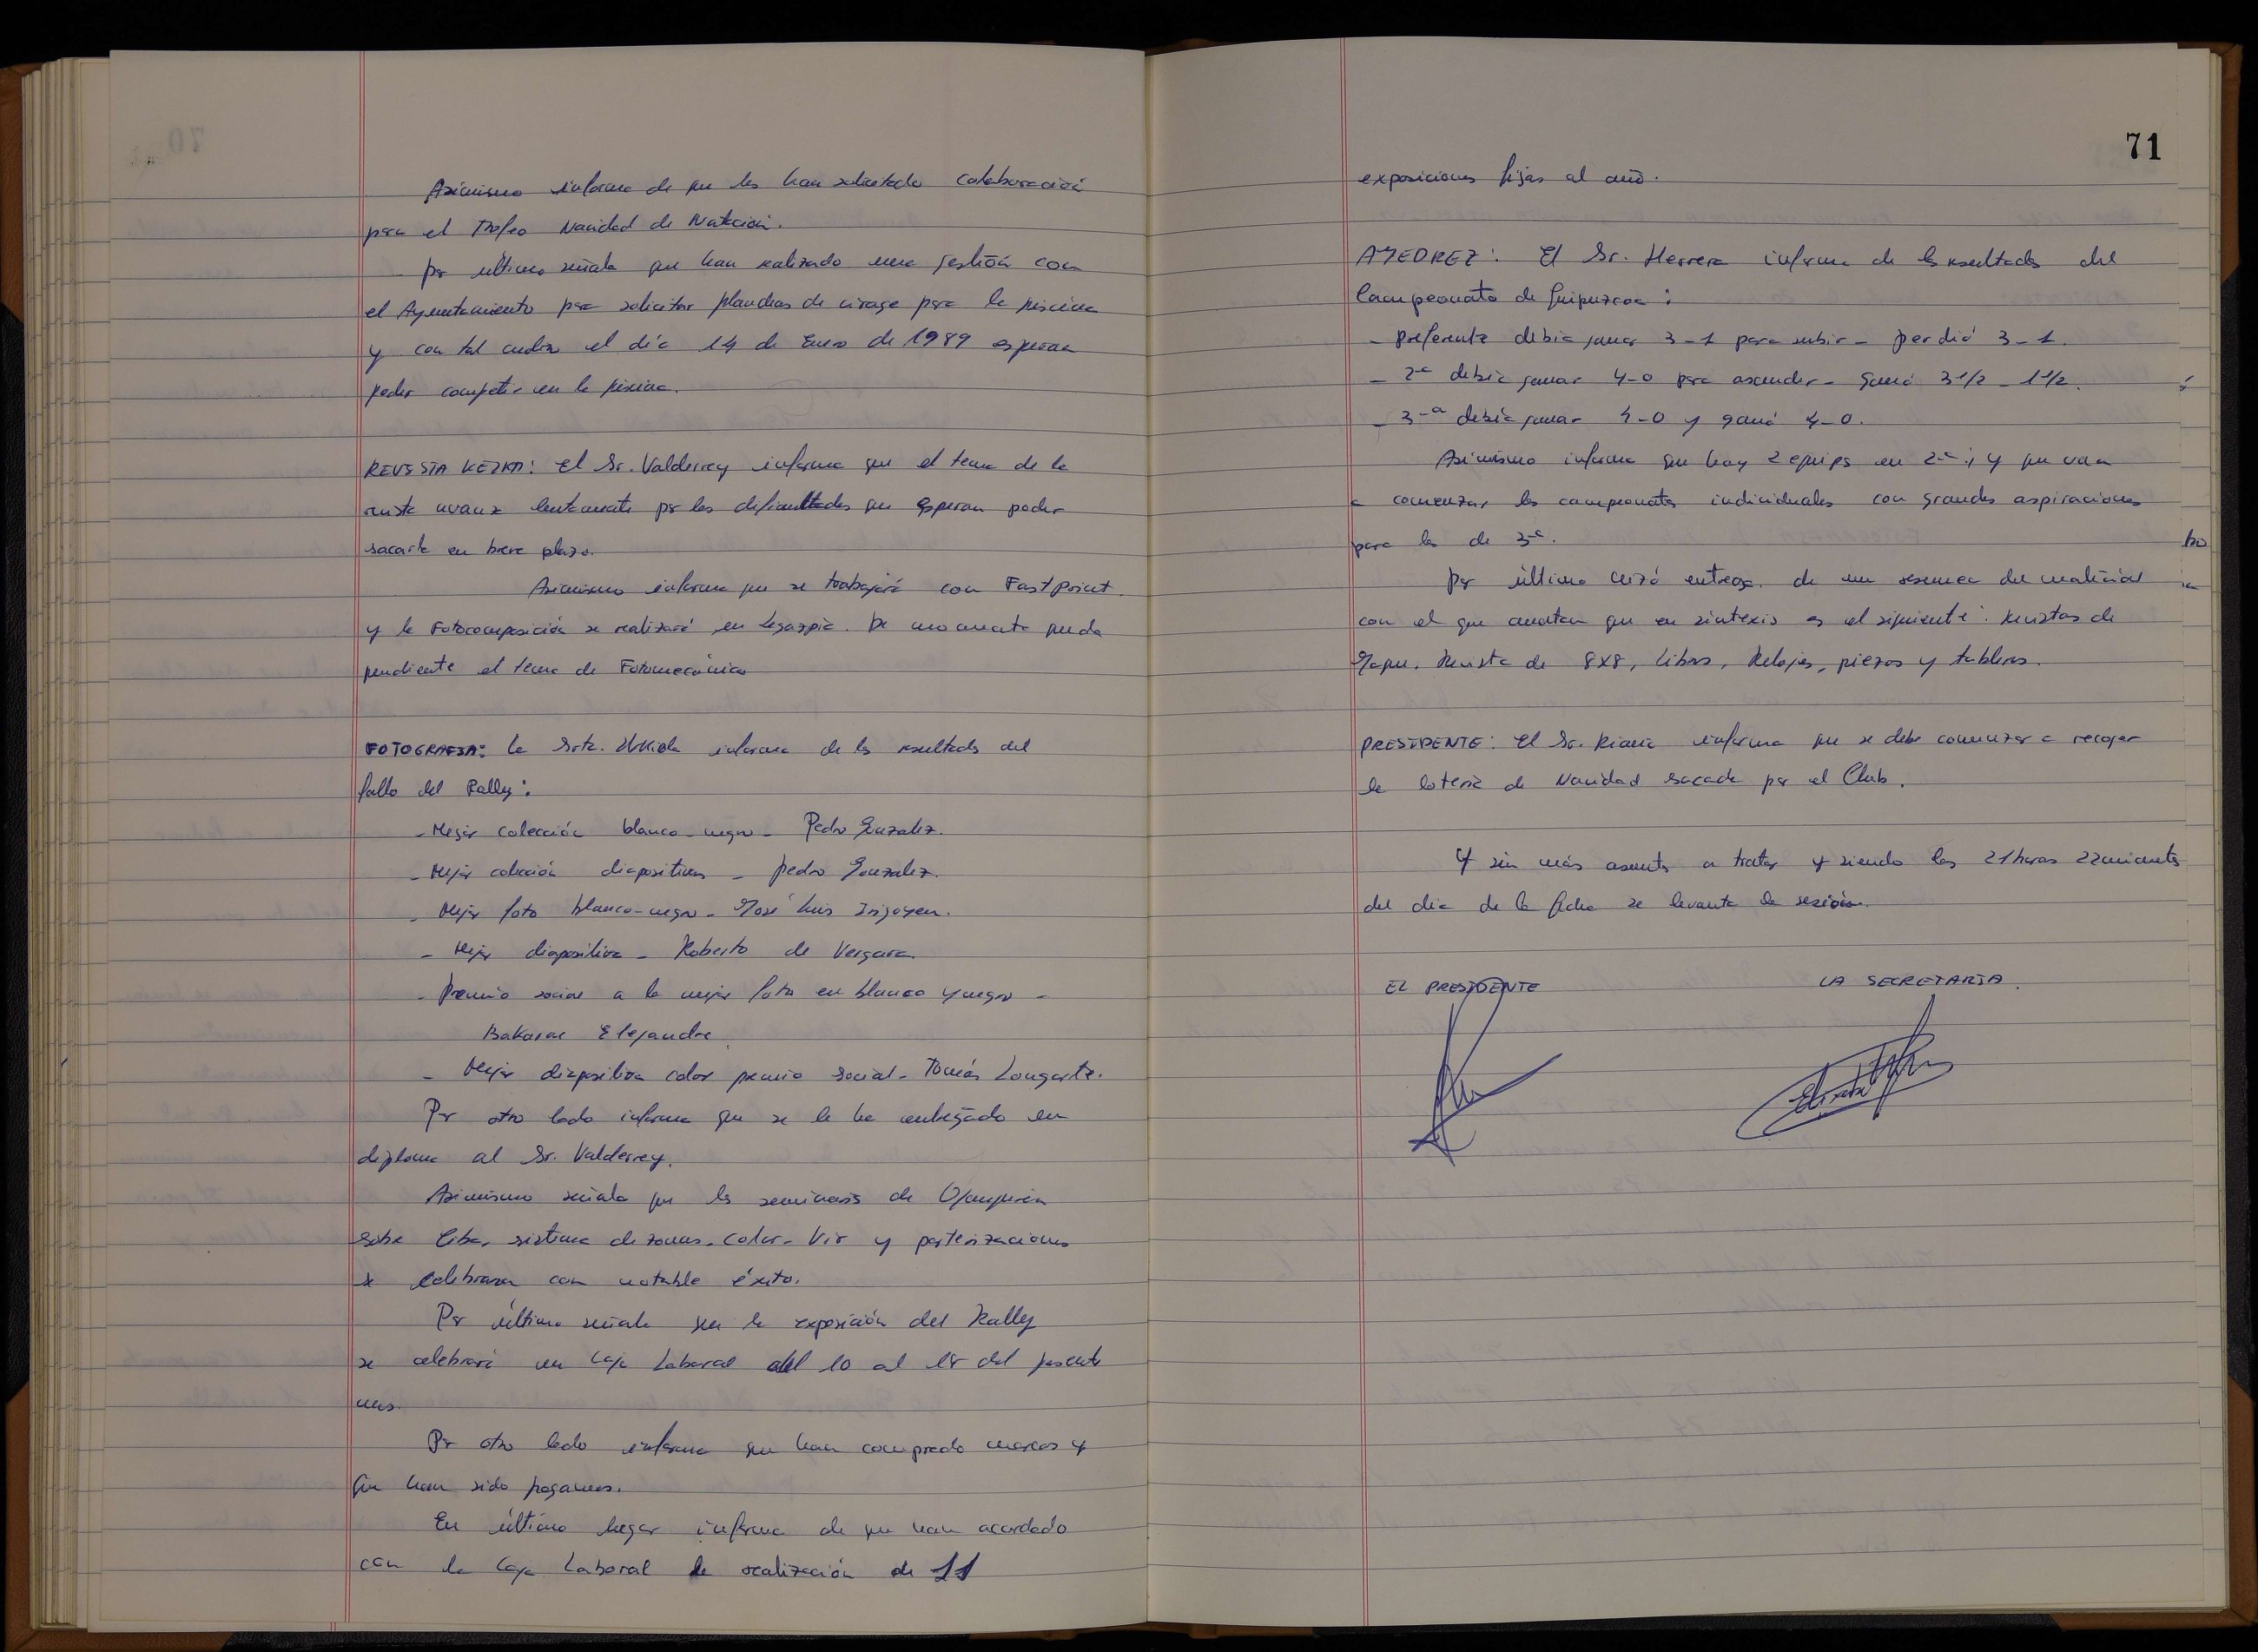 Asimismo informa de que les han solicitado colaboración
para el Trofeo Navidad de Natación.
Por último señala que han realizado una gestión con
el Ayuntamiento para solicitar planchas de viraje para la piscina
y con tal el día 14 de Enero de 1989 esperan
poder competir en la piscina.
REVISTA KEZKA: El Sr. Valderrey informa que el tema de la
revista avanza lentamente por las dificultades que esperan poder
sacarla en breve plazo.
Asimismo informa que se trabajará con Fast Print
y la Fotocomposición se realizará en Legazpia. De momento queda
pendiente el tema de Fotomecánica
FOTOGRAFIA: La Srta. Urkiola informa de los resultados del
fallo del Rally:
- Mejor colección blanco-negro - Pedro Gonzalez.
- Mejor colección diapositivas - Pedro Gonzalez.
- Mejor foto blanco-negro - José Luis Irigoyen.
- Mejor diapositiva - Roberto de Vergara.
- Premio social a la mejor foto en blanco y negro -
Bakarne Elejandre.
- Mejor diapositiva color premio social - Tomás Longarte.
Por otro lado informa que se le ha entregado un
diploma al Sr. Valderrey.
Asimismo señala que los seminarios de Ojanguren
sobre Ciba, sistema de zonas, color, Vir y posterizaciones
se celebraron con notable éxito.
Por último señala que la exposición del Rally
se celebrará en Caja Laboral del 10 al 18 del presente
mes.
Por otro lado informa que han comprado marcos y
que han sido
En último lugar informa de que han acordado
con la Caja Laboral la realización de 11
71
exposiciones fijas al año.
AJEDREZ: El Sr. Herrera informa de los resultados del
Campeonato de Guipuzcoa:
- Preferente debia ganar 3-1 para subir - perdió 3-1.
- 2ª debía ganar 4-0 para ascender - Ganó 3 1/2 - 1 1/2.
- 3ª debía ganar 4-0 y ganó 4-0.
Asimismo informa que hay 2 equipos en 2ª, y que van
a comenzar los campeonatos individuales con grandes aspiraciones
para los de 3ª.
Por último hizo entrega de un resumen del material
con el que cuentan que en sintexis es el siguiente: Revistas de
Jaque, Revista de 8x8, Libros, Relojes, piezas y tableros.
PRESIDENTE: El Sr. Riaño informa que se debe comenzar a recoger
la lotería de Navidad sacada por el Club.
Y sin más asuntos a tratar y siendo las 21 horas 22 minutos
del dia de la fecha se levanta la sesión.
EL PRESIDENTE LA SECRETARIA.